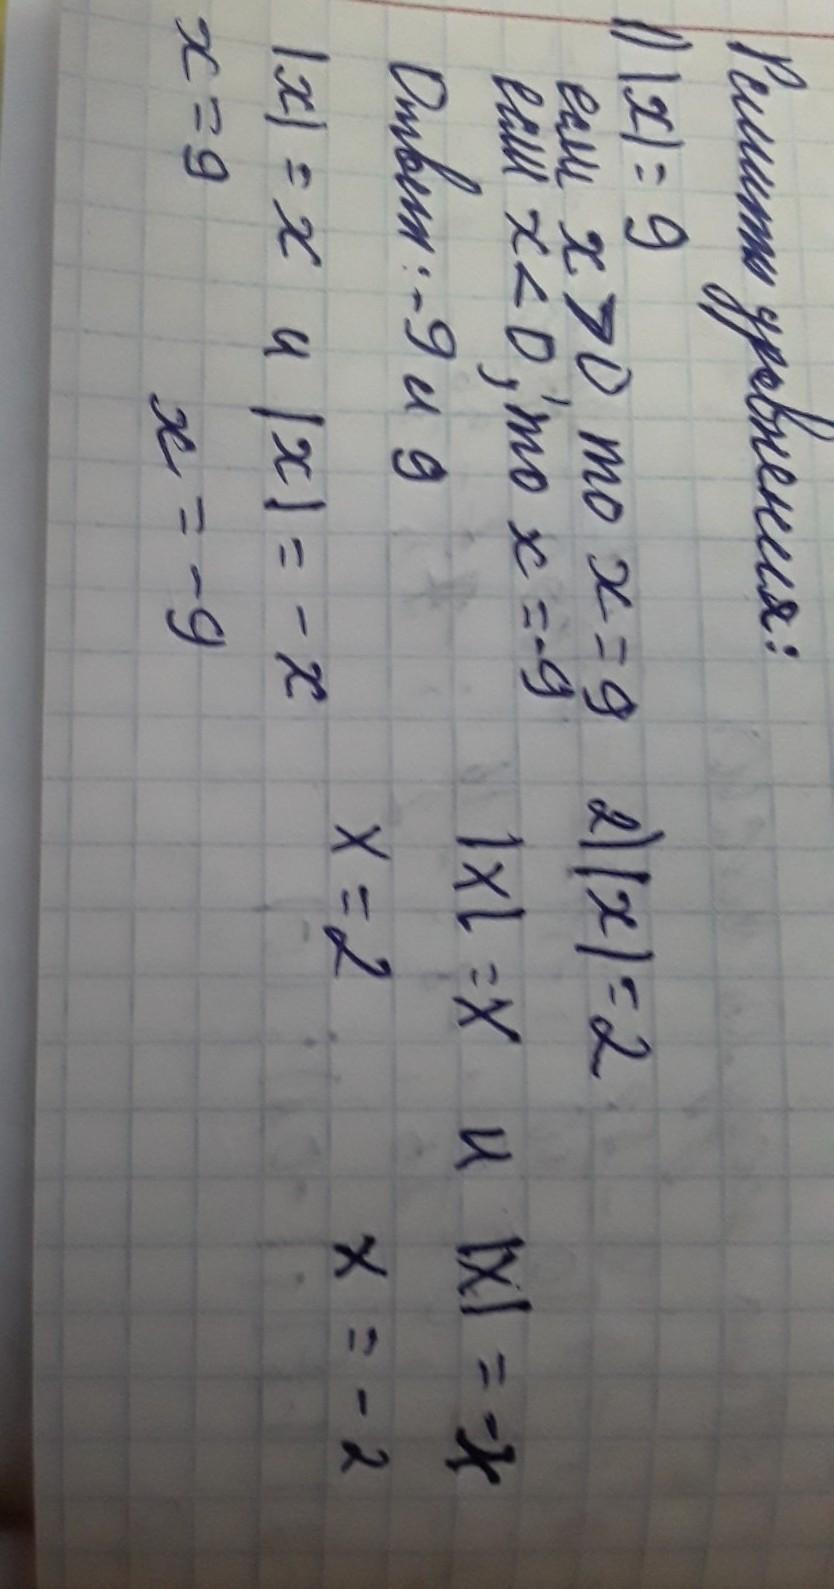 Решить уравнения:
1) |x| = 9
если x > 0 то x = 9
если x < 0, то x = -9
Ответ: -9 и 9
|x| = x и |x| = -x
x = 9 x = -9
2) |x| = 2
|x| = x и |x| = -x
x = 2 x = -2